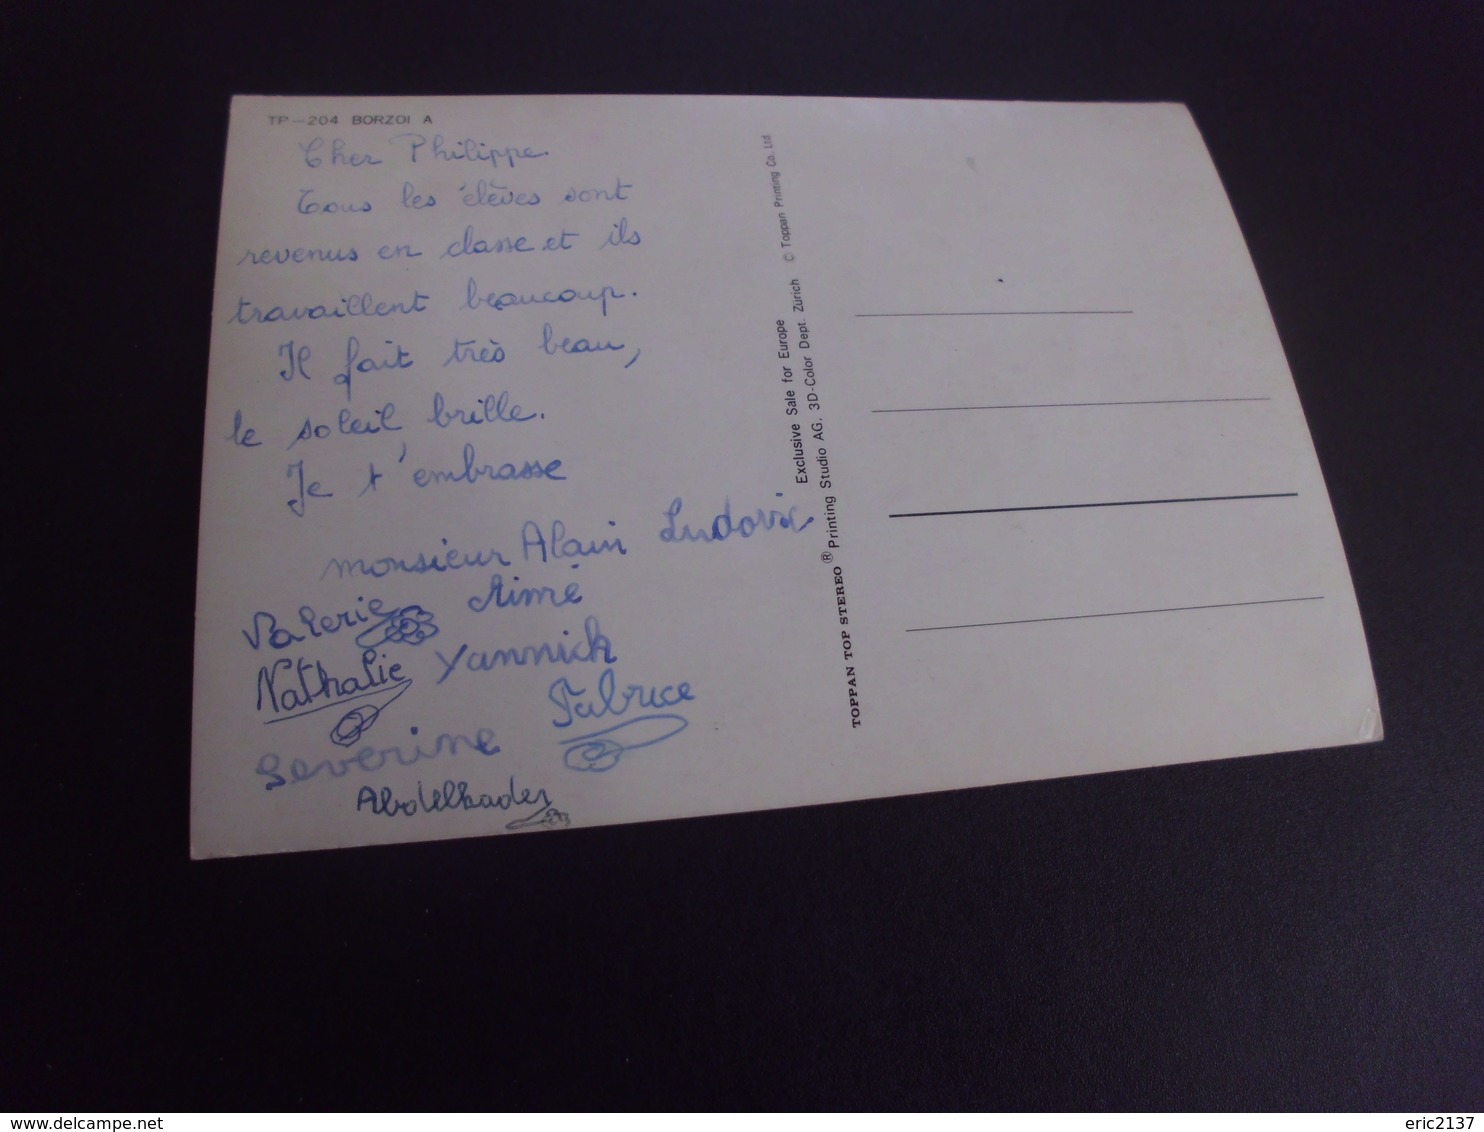 TP-204 BORZOI A
Cher Philippe.
Tous les élèves sont
revenus en classe et ils
travaillent beaucoup.
Il fait très beau,
le soleil brille.
Je t'embrasse
monsieur Alain Ludovic
Valerie Aimé
Nathalie Yannick
Fabrice
Severine
Abdelkader
TOPPAN TOP STEREO® Printing Studio AG. 3D-Color Dept. Zürich © Toppan Printing Co. Ltd
Exclusive Sale for Europe
www.delcampe.net
eric2137